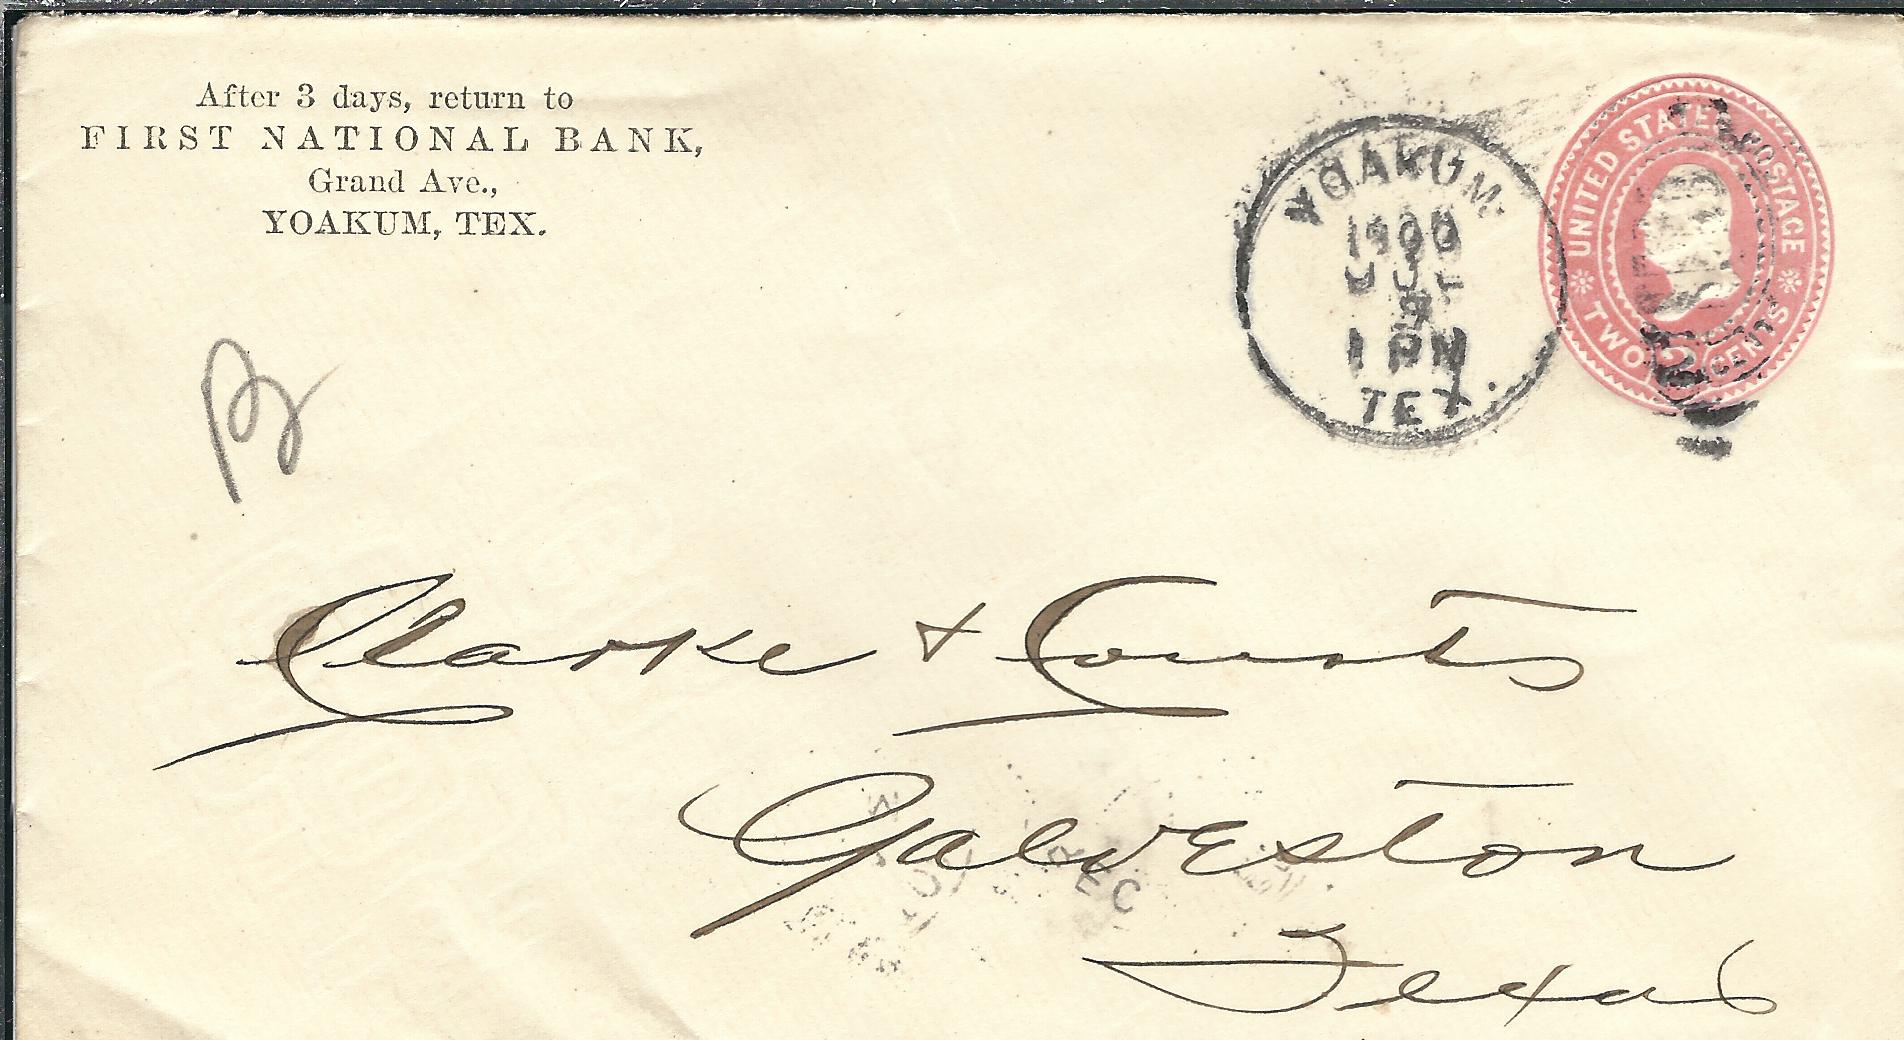 After 3 days, return to
FIRST NATIONAL BANK,
Grand Ave.,
YOAKUM, TEX.
YOAKUM.
1900
1 PM
TEX.
UNITED STATES POSTAGE
TWO 2 CENTS
Clarke & Courts
Galveston
Texas
REC